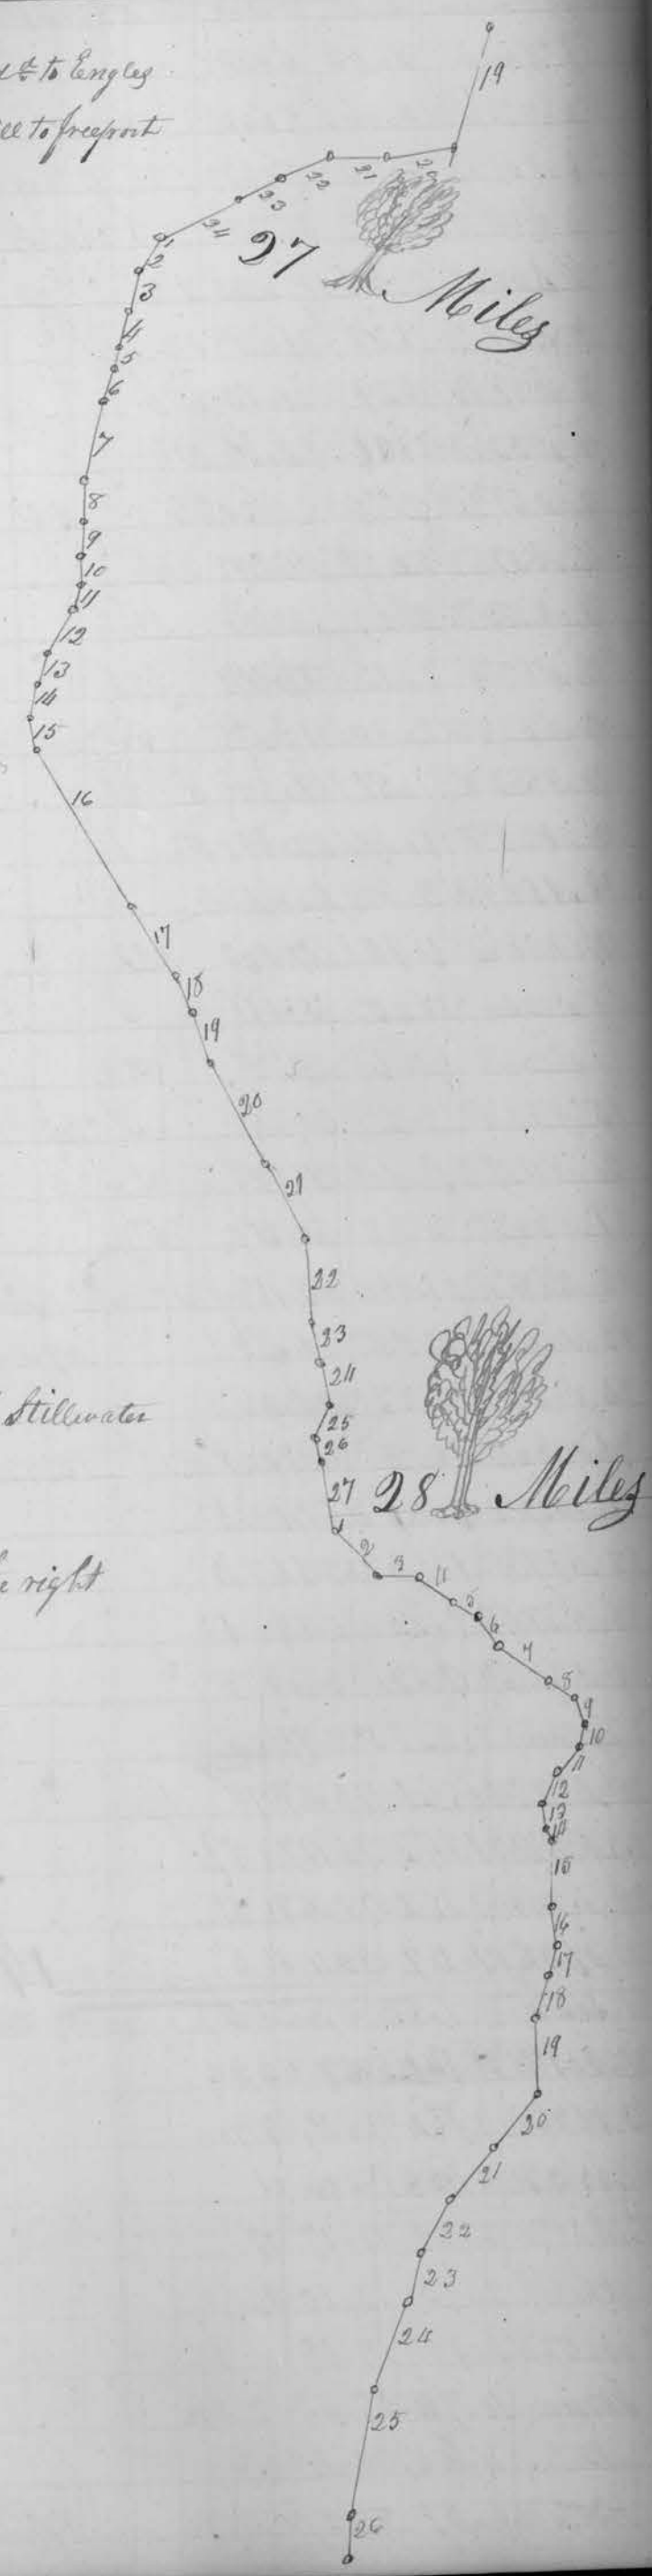 to Engles
to freeport
19
20
21
22
23
24
27 Miles
1
2
3
4
5
6
7
8
9
10
11
12
13
14
15
16
17
18
19
20
21
22
23
24
Stillwater
25
26
27
28 Miles
1
2
3
4
5
6
right
7
8
9
10
11
12
13
14
15
16
17
18
19
20
21
22
23
24
25
26